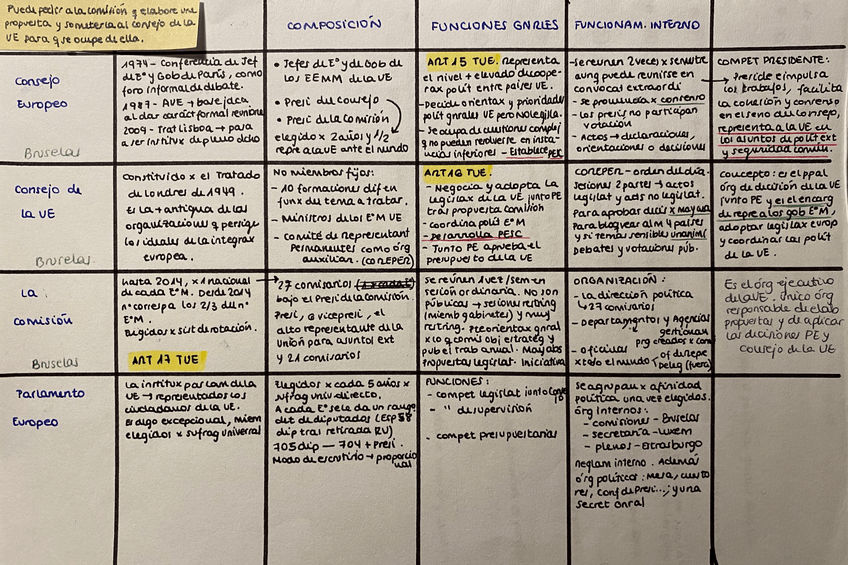 Puede pedir a la comisión q elabore una
propuesta y someterla al consejo de la
UE para q se ocupe de ella.
COMPOSICIÓN
FUNCIONES GNRLES
FUNCIONAM. INTERNO
Consejo
Europeo
Bruselas
1974 - Conferencia de Jef
de Eº y Gob de París, como
foro informal de debate.
1987 - AUE → base jca
al dar caract formal reunione
2009 - Trat Lisboa → pasa
a ser institux de pleno dcho
• Jefes de Eº y de Gob de
los EEMM de la UE
• Presi del consejo
• Presi de la Comisión
elegido x 2 años y 1/2
repre a la UE ante el mundo
ART 15 TUE. Representa
el nivel + elevado de coope-
rax polít entre países UE.
- Decide orientax y prioridades
polít gnrales UE pero No legisla.
- Se ocupa de cuestiones complej
q no pueden resolverse en insta-
ncias inferiores - Establece PESC
- Se reunen 2 veces x semestre
aunq puede reunirse en
convocat extraordi
- se pronuncia x consenso
- los presis no participan
votación
- Actos → declaraciones,
orientaciones o decisiones
COMPET PRESIDENTE:
→ Preside e impulsa
los trabajos, facilita
la cohesión y consenso
en el seno del Consejo,
representa a la UE en
los asuntos de polít ext
y seguridad común
Consejo de
la UE
Bruselas
Constituido x el Tratado
de Londres de 1949.
Es la + antigua de las
organizaciones q persigue
los ideales de la integrax
europea.
No miembros fijos:
- 10 formaciones dif en
funx del tema a tratar.
- Ministros de los EºM UE
- Comité de representant
Permanentes como órg
auxiliar. (COREPER)
ART 16 TUE.
- Negocia y adopta la
legislax de la UE junto PE
tras propuesta comisión
- coordina polít EºM
- Desarrolla PESC
- Junto PE aprueba el
presupuesto de la UE
COREPER - orden del día.
Sesiones 2 partes → actos
legislat y acts no legislat.
Para aprobar decis x mayoría
Para bloquear al M 4 países
y si temas sensible unanimi
Debates y votaciones púb.
Concepto: es el ppal
órg de decisión de la UE
junto PE y es el encarg
de repre a los gob EºM,
adoptar legislax europ
y coordinar las polít
de la UE.
La
Comisión
Bruselas
hasta 2014, x 1 nacional
de cada EºM. Desde 2014
nº corresp a los 2/3 del nº
EºM.
Elegidos x sist de rotación.
ART 17 TUE
27 comisarios
bajo el Presi de la comisión.
Presi, 8 vicepresi, el
alto representante de la
Unión para asuntos ext
y 21 comisarios
Se reúnen 1 vez/sem en
sesión ordinaria. No son
públicas → sesiones restring
(miemb gabinetes) y muy
restring.
propuestas legislat. Iniciativa
ORGANIZACIÓN:
- La dirección política
27 comisarios
- Departamentos y Agencias
gestionan
prg creados x comi
- oficinas
x todo el mundo
of de repe
deleg (fuera)
Es el órg ejecutivo
de la UE. Único órg
responsable de elab
propuestas y de aplicar
las decisiones PE y
Consejo de la UE
Parlamento
Europeo
La institux parlam de la
UE → representados los
ciudadanos de la UE.
Es algo excepcional, miem
elegidos x sufrag universal
Elegidos x cada 5 años x
sufrag univ directo.
A cada Eº se le da un rango
det de diputados (Esp 58
dip tras retirada RU)
705 dip — 704 + Presi.
Modo de escrutinio → proporcio
nal
FUNCIONES:
- compet legislat junto Consejo
- " de supervisión
- compet presupuestarias
Se agrupan x afinidad
política una vez elegidos.
Órg Internos:
- comisiones - Bruselas
- secretaría - Luxem
- plenos - Estrasburgo
Reglam interno. Además
órg políticos: Mesa, cuesto
res, Conf de Presi...; y una
Secret Gnral